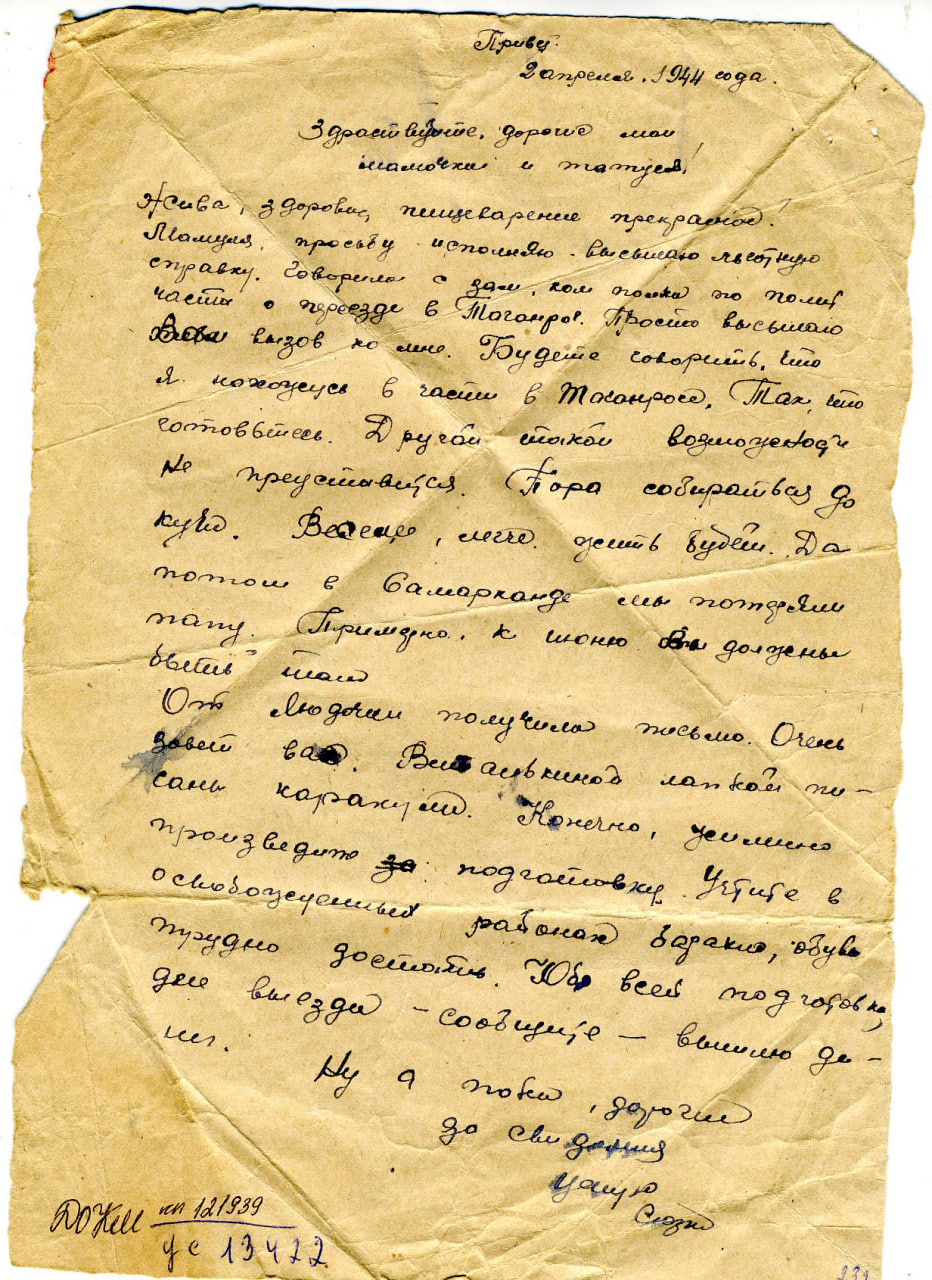 Привет.
2 апреля. 1944 года.
Здраствуйте, дорогие мои
мамочка и татуся!
Жива, здорова, пищеварение прекрасное.
Мамуля, просьбу исполняю – высылаю льготную
справку. Говорила с зам. ком полка по полит
части о переезде в Таганрог. Просто высылаю
Вам вызов ко мне. Будете говорить, что
я нахожусь в части в Таганроге. Так, что
готовьтесь. Другой такой возможности
не представится. Пора собираться до
кучи. Веселее, легче жить будем. Да
потом в Самарканде мы потеряли
папу. Примерно, к июню Вы должны
быть там
От Людочки получила письмо. Очень
зовет вас. лапкой пи-
саны каракули. Конечно, усиленно
произведите подготовку. Учтите в
освобожденных районах барахло, обувь
трудно достать. Об всей подготовке,
дне выезда – сообщите – вышлю де-
нег.
Ну а пока, дорогие
до свидания
Целую
Сюзя
ДОКМ кп 121939
УС 13422